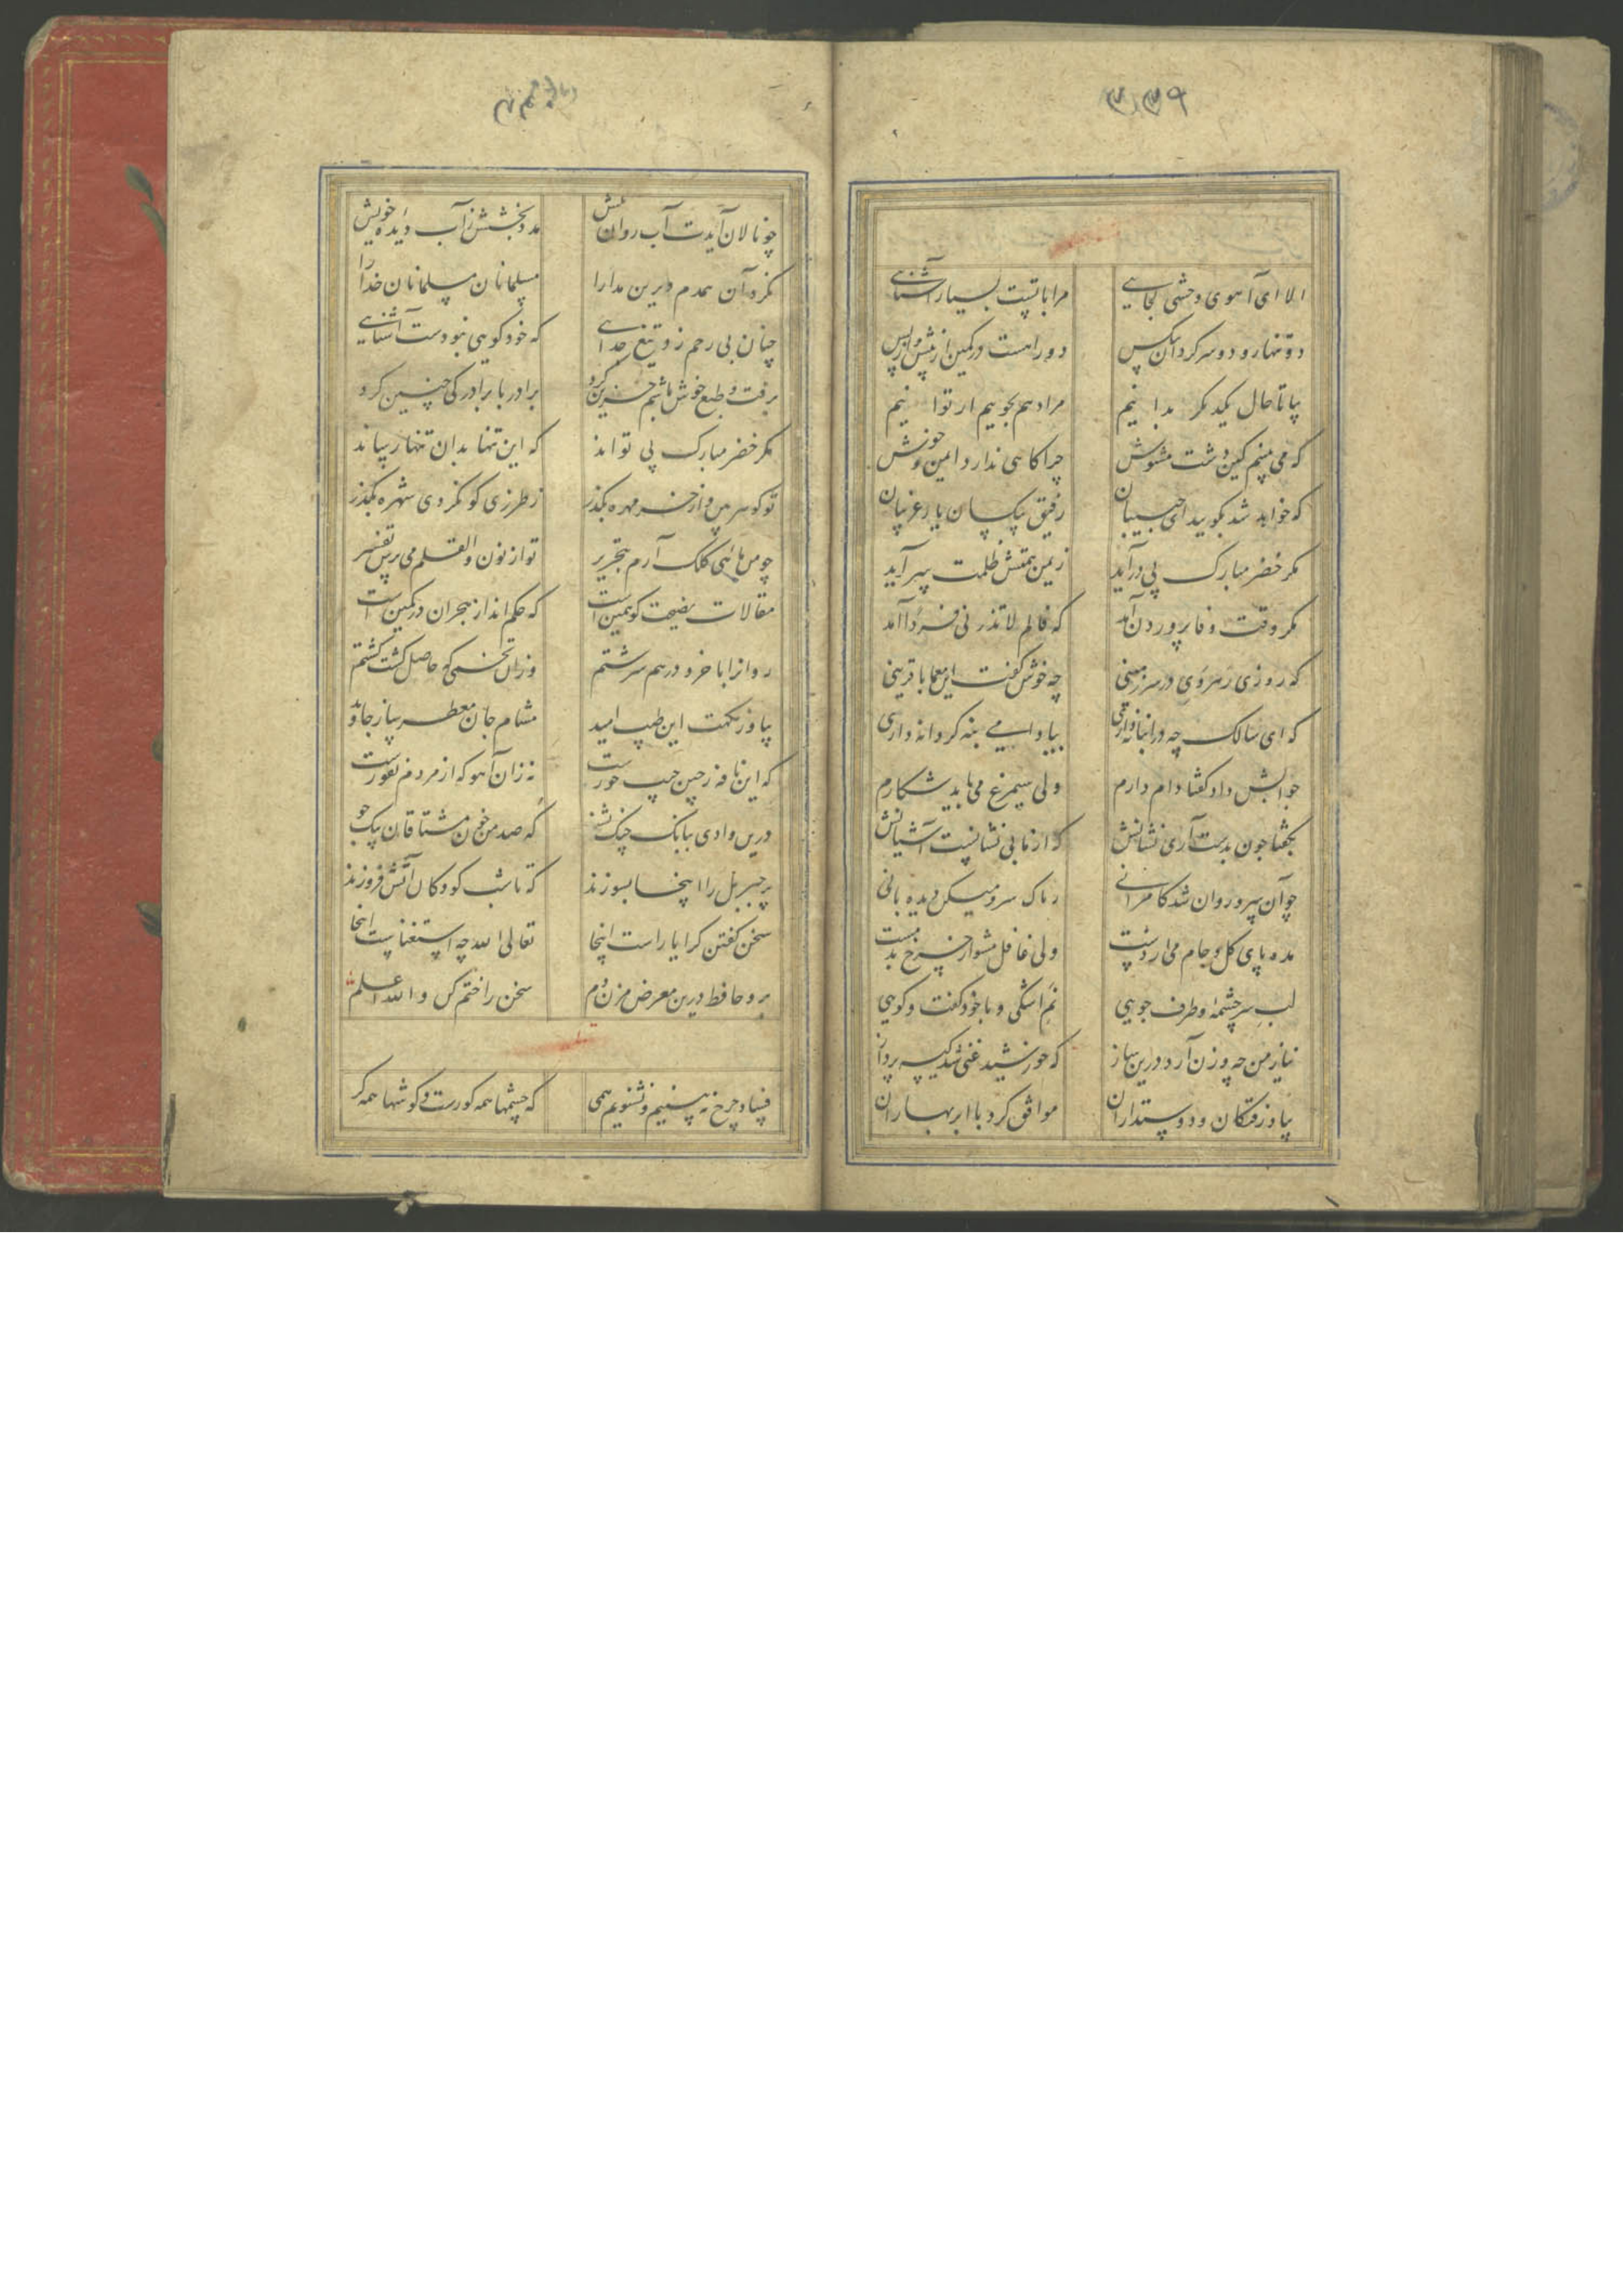 ۳۳۹
الا ای آهوی وحشی کجایی مرا با تست بسیار آشنایی
دو تنها رو دو سرگردان بیکس دو راهست در کمین از پیش و از پس
بیا تا حال یکدیگر بدانیم مراد هم بجوییم ار توانیم
که می بینم که این دشت مشوش چراگاهی ندارد ایمن و خوش
که خواهد شد بگویید ای حبیبان رفیق بیکسان یار غریبان
مگر خضر مبارک پی درآید ز یمن همتش ظلمت سرآید
مگر وقت وفا پروردن آمد که فالم لا تذرنی فردا آمد
که روزی رهروی در سرزمینی چه خوش گفت این معما با قرینی
که ای سالک چه در انبانه داری بیا دامی بنه گر دانه داری
جوابش داد گفتا دام دارم ولی سیمرغ می باید شکارم
بگفتا چون بدست آری نشانش که از ما بی نشانیست آشیانش
چو آن سرو روان شد کاروانی ز تاک سرو میکن دیده بانی
مده پای گل و جام می از دست ولی غافل مشو از چرخ بدمست
لب سرچشمه و طرف جویی نم اشکی و با خود گفت و گویی
نیاز من چه وزن آرد درین ساز که خورشید غنی شد کیسه پرداز
بیاد رفتگان و دوستداران موافق گرد با ابر بهاران
چو نالان آیدت آب روان پیش مدد بخشش ز آب دیده خویش
نکرد آن همدم دیرین مدارا مسلمانان مسلمانان خدا را
چنان بی رحم زد تیغ جدایی که خود گویی نبودست آشنایی
برفت و طبع خوش باشم حزین کرد برادر با برادر کی چنین کرد
مگر خضر مبارک پی تواند که این تنها بدان تنها رساند
تو گوهر بین و از خرمهره بگذر ز طرزی کو نگردی شهره بگذر
چو من ماهی کلک آرم بتحریر تو از نون والقلم می پرس تفسیر
مقالات نصیحت گو همین است که حکم انداز هجران در کمین است
روانرا با خرد درهم سرشتم وزان تخمی که حاصل گشت کشتم
بیاور نکهت این طیب امید مشام جان معطر ساز جاوید
که این نافه ز چین جیب حورست نه زان آهو که از مردم نفورست
درین وادی ببانگ چنگ بشنو که صد من خون مشتاقان بیک جو
پر جبریل را اینجا بسوزند که تا شب کودکان آتش فروزند
سخن گفتن کرا یاراست اینجا تعالی الله چه استغناست اینجا
برو حافظ درین معرض مزن دم سخن را ختم کن والله اعلم
فساد چرخ نه بینیم و نشنویم همی که چشمها همه کورست و گوشها همه کر